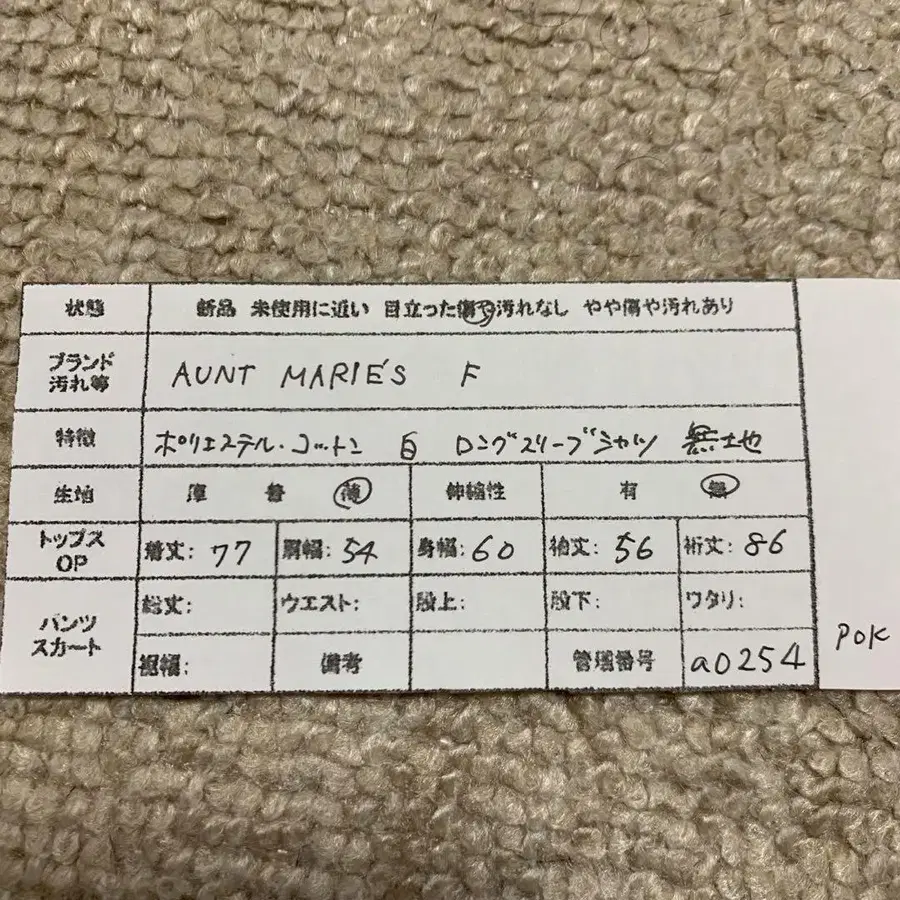 状態 新品 未使用に近い 目立った傷や汚れなし やや傷や汚れあり
ブランド
汚れ等 AUNT MARIE'S F
特徴 ポリエステル・コットン 白 ロングスリーブシャツ 無地
生地 厚 普 薄 伸縮性 有 無
トップス
OP 着丈: 77 胴幅: 54 身幅: 60 袖丈: 56 裄丈: 86
パンツ
スカート 総丈: ウエスト: 股上: 股下: ワタリ:
裾幅: 備考 管理番号 a0254
POK